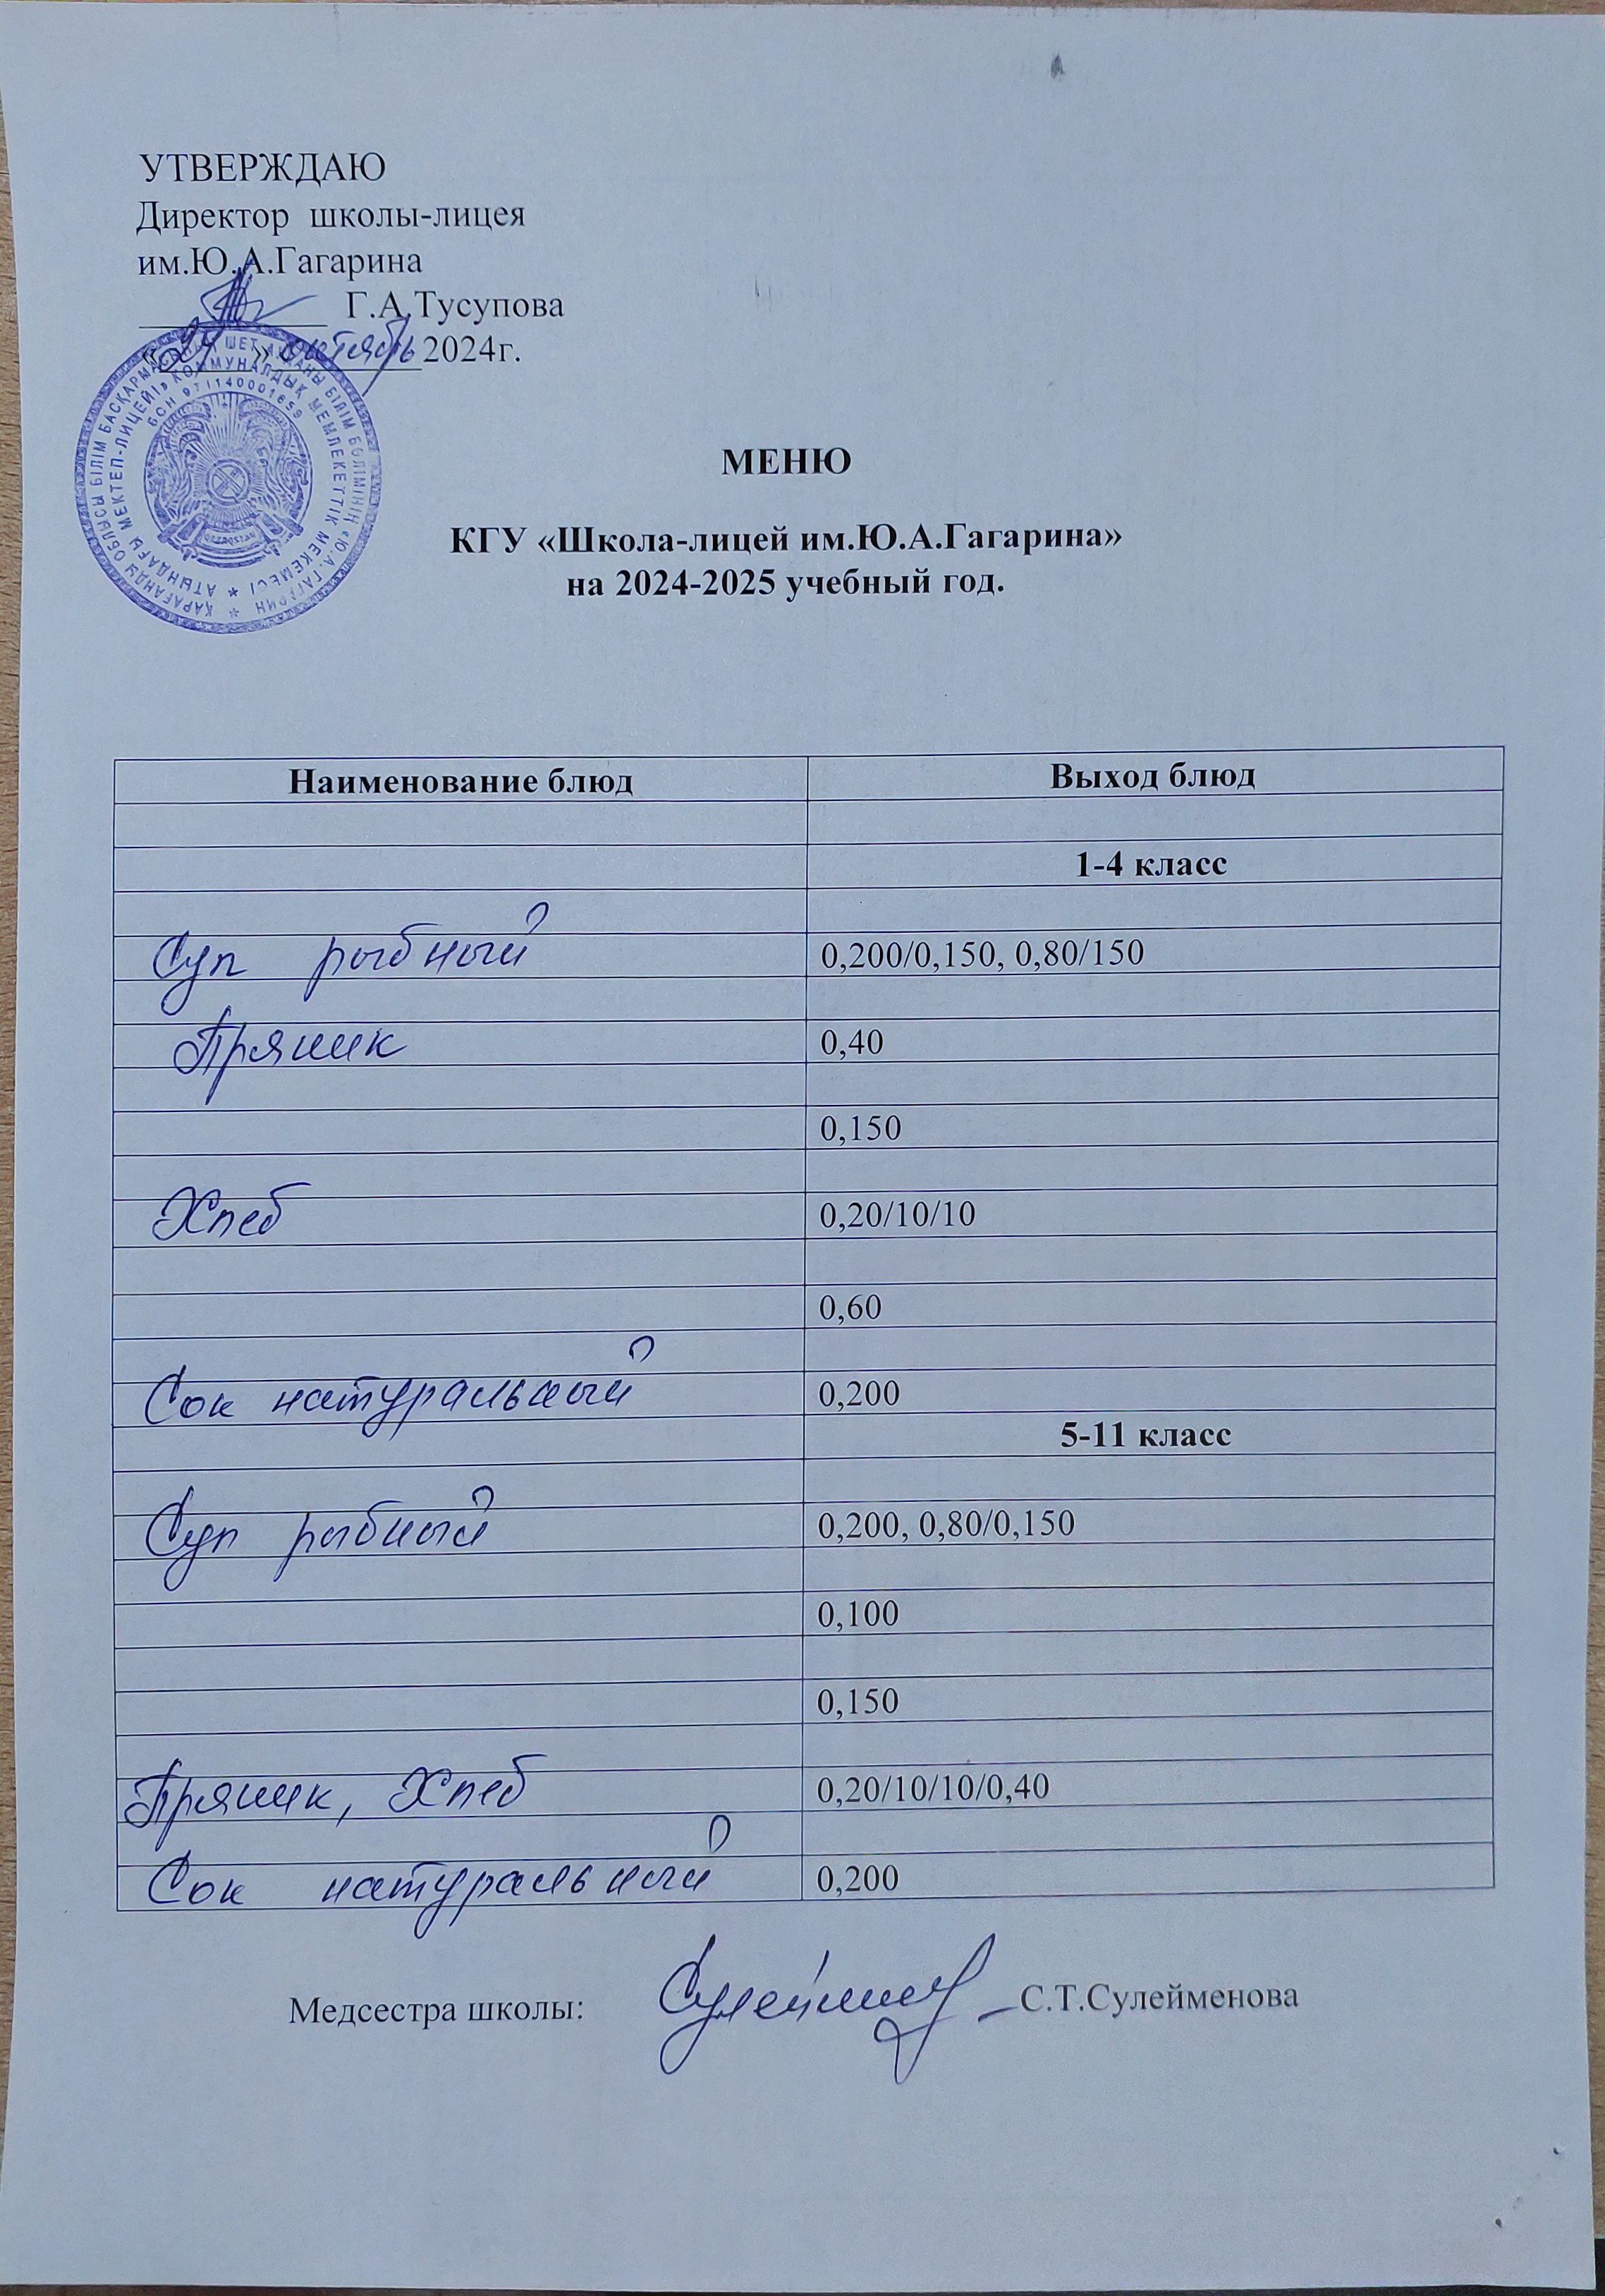 УТВЕРЖДАЮ
Директор школы-лицея
им.Ю.А.Гагарина
Г.А.Тусупова
«24» октябрь 2024г.
ҚАРАҒАНДЫ ОБЛЫСЫ БІЛІМ БАСҚАРМАСЫНЫҢ ШЕТ АУДАНЫ БІЛІМ БӨЛІМІНІҢ «Ю.А. ГАГАРИН
АТЫНДАҒЫ МЕКТЕП-ЛИЦЕЙІ» КОММУНАЛДЫҚ МЕМЛЕКЕТТІК МЕКЕМЕСІ
БСН 971140001659
QAZAQSTAN
МЕНЮ
КГУ «Школа-лицей им.Ю.А.Гагарина»
на 2024-2025 учебный год.
Наименование блюд Выход блюд
1-4 класс
Суп рыбный 0,200/0,150, 0,80/150
Пряник 0,40
0,150
Хлеб 0,20/10/10
0,60
Сок натуральный 0,200
5-11 класс
Суп рыбный 0,200, 0,80/0,150
0,100
0,150
Пряник, Хлеб 0,20/10/10/0,40
Сок натуральный 0,200
Медсестра школы: С.Т.Сулейменова